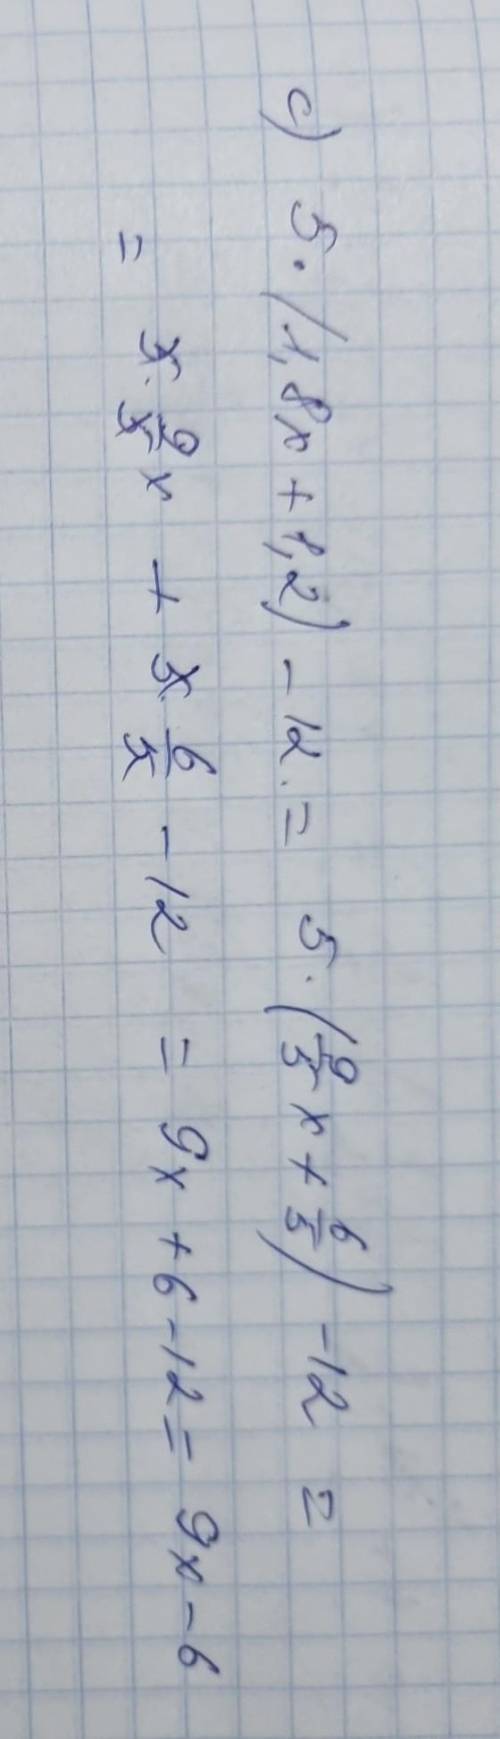 c) 5·(1,8x+1,2)-12.= 5·(9/5 x+6/5)-12 =
= 5·9/5 x + 5·6/5 -12 = 9x+6-12= 9x-6